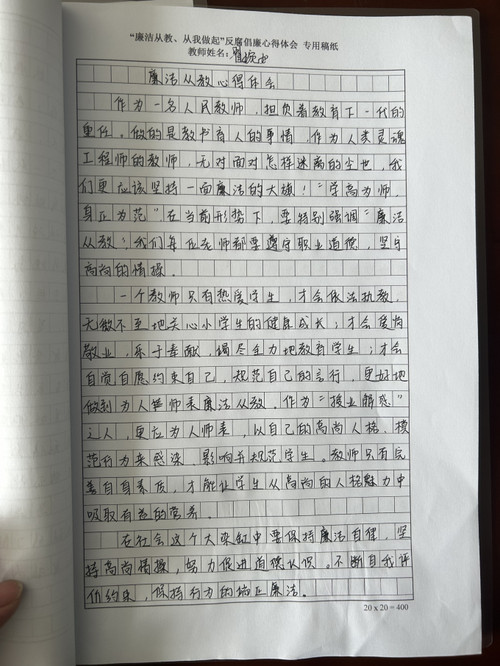 “廉洁从教、从我做起”反腐倡廉心得体会 专用稿纸
教师姓名:
廉洁从教心得体会
作为一名人民教师，担负着教育下一代的
重任。做的是教书育人的事情，作为人类灵魂
工程师的教师，无对面对怎样迷离的尘世，我
们更应该坚持一面廉洁的大旗！“学高为师，
身正为范”在当前形势下，要特别强调“廉洁
从教！我们每位老师都要遵守职业道德，坚守
高尚的情操。
一个教师只有热爱学生，才会依法执教，
无微不至地关心小学生的健康成长；才会爱岗
敬业，乐于奉献，竭尽全力地教育学生；才会
自觉自愿约束自己，规范自己的言行，更好地
做到为人师表廉洁从教。作为“授业解惑”
之人，更应为人师表，以自己的高尚人格、模
范行为来感染、影响并规范学生。教师只有完
善自身素质，才能让学生从高尚的人格魅力中
吸取有益的营养。
在社会这个大染缸中要保持廉洁自律，坚
持高尚情操，努力促进道德认识。不断自我评
价约束，保持行为的端正廉洁。
20 x 20 = 400